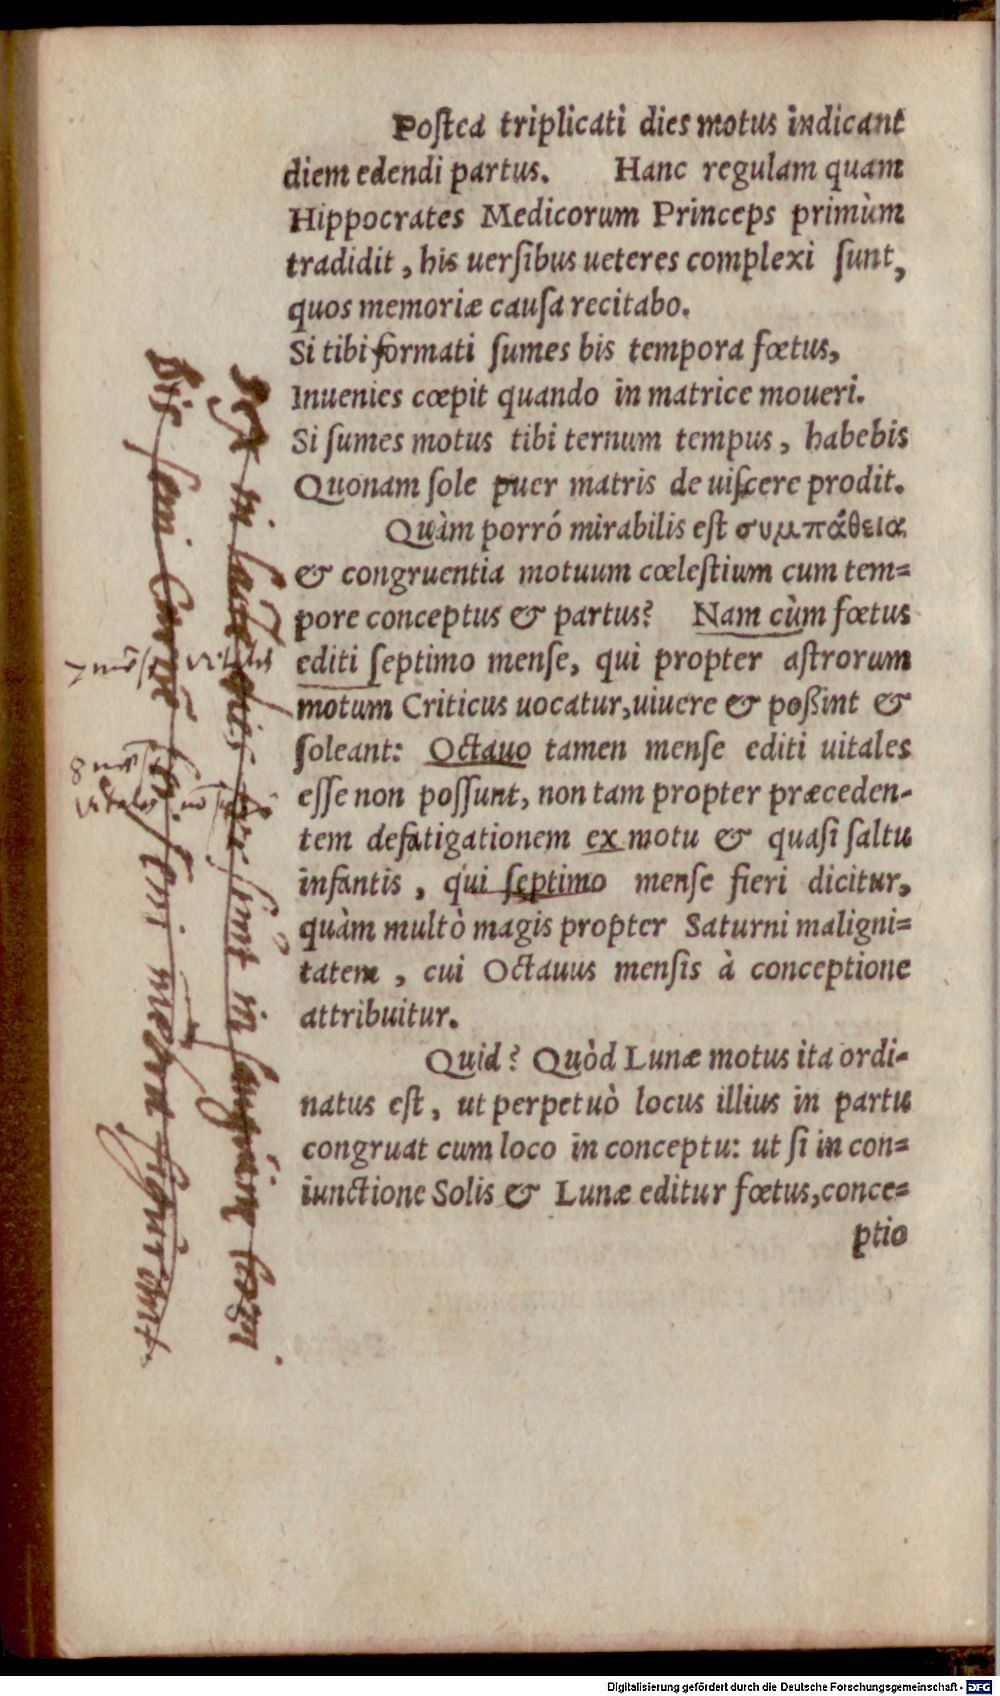 Postea triplicati dies motus indicant
diem edendi partus. Hanc regulam quam
Hippocrates Medicorum Princeps primùm
tradidit, his uersibus ueteres complexi sunt,
quos memoriæ causa recitabo.
Si tibi formati sumes bis tempora fœtus,
Inuenies cœpit quando in matrice moueri.
Si sumes motus tibi ternum tempus, habebis
Quonam sole puer matris de uiscere prodit.
Quàm porró mirabilis est συμπάθεια
& congruentia motuum cœlestium cum tem=
pore conceptus & partus? Nam cùm fœtus
editi septimo mense, qui propter astrorum
motum Criticus uocatur, uiuere & possint &
soleant: Octauo tamen mense editi uitales
esse non possunt, non tam propter præceden-
tem defatigationem ex motu & quasi saltu
infantis, qui septimo mense fieri dicitur,
quàm multò magis propter Saturni maligni=
tatem, cui Octauus mensis à conceptione
attribuitur.
Quid? Quòd Lunæ motus ita ordi-
natus est, ut perpetuò locus illius in partu
congruat cum loco in conceptu: ut si in con=
iunctione Solis & Lunæ editur fœtus, conce=
ptio
Sex in lacte dies ter sunt in sanguine terni
Bis seni carnē ter seni mēbra figurant.
8 mēs
vitales nō
Digitalisierung gefördert durch die Deutsche Forschungsgemeinschaft - DFG